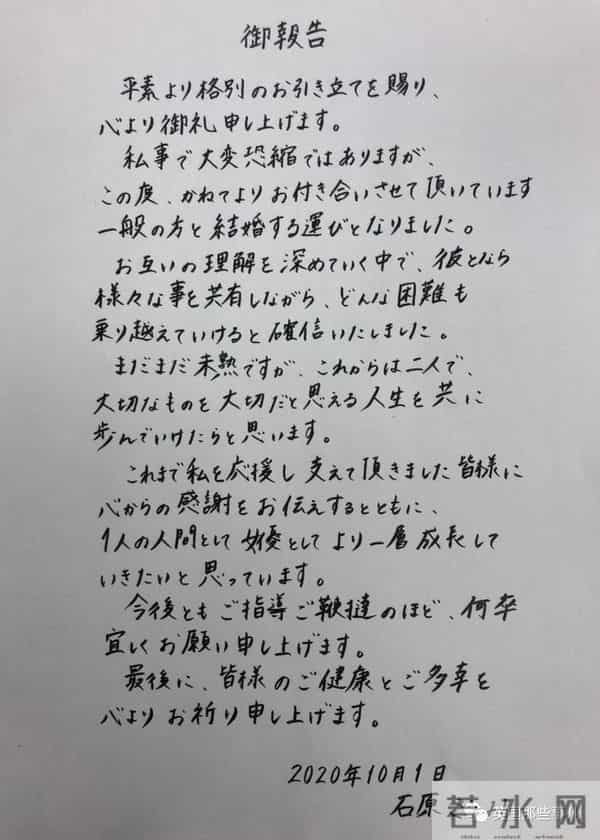 御報告
平素より格別のお引き立てを賜り、
心より御礼申し上げます。
私事で大変恐縮ではありますが、
この度、かねてよりお付き合いさせて頂いています
一般の方と結婚する運びとなりました。
お互いの理解を深めていく中で、彼となら
様々な事を共有しながら、どんな困難も
乗り越えていけると確信いたしました。
まだまだ未熟ですが、これからは二人で、
大切なものを大切だと思える人生を共に
歩んでいけたらと思います。
これまで私を応援し支えて頂きました皆様に
心からの感謝をお伝えするとともに、
1人の人間として女優としてより一層成長して
いきたいと思っています。
今後ともご指導ご鞭撻のほど、何卒
宜しくお願い申し上げます。
最後に、皆様のご健康とご多幸を
心よりお祈り申し上げます。
2020年10月1日
石原
英国那些事儿
若水网